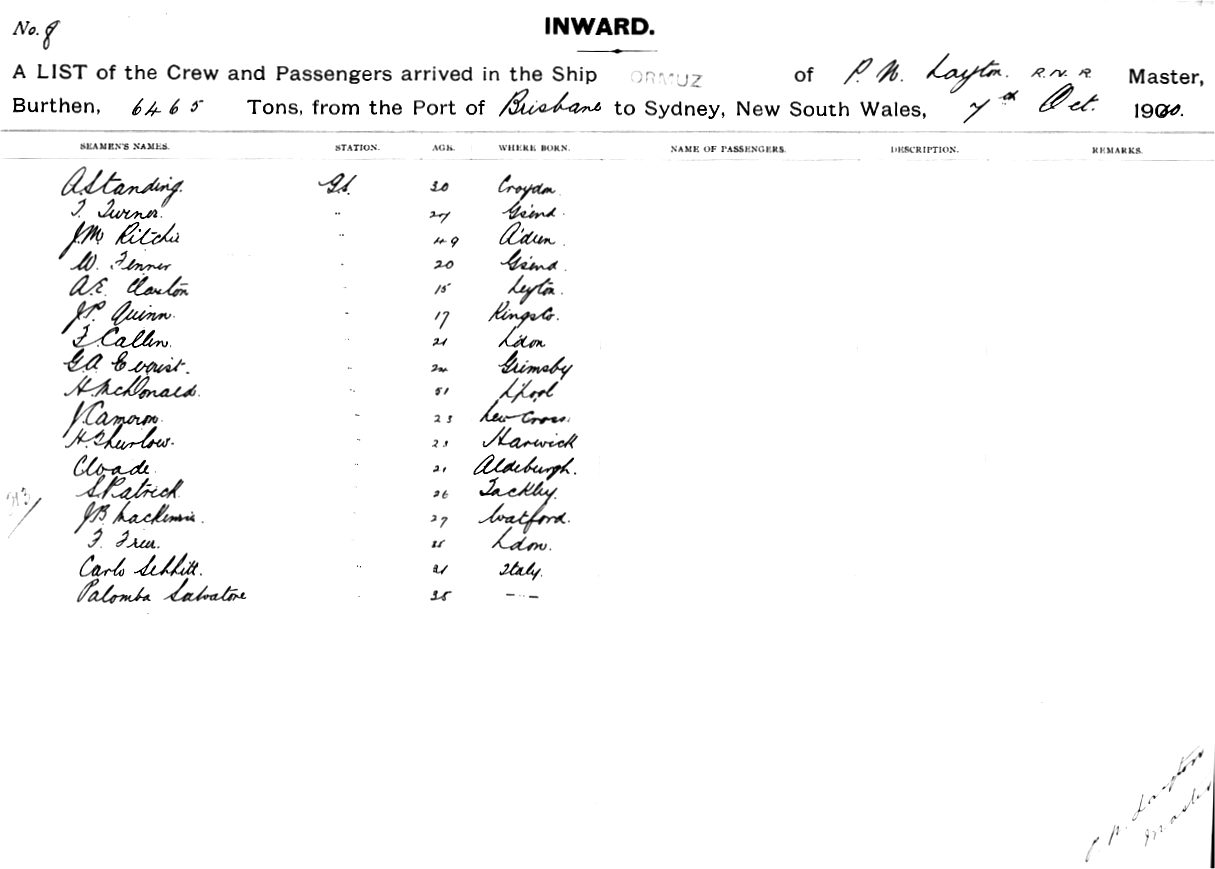 No. 8
INWARD.
A LIST of the Crew and Passengers arrived in the Ship ORMUZ of P. N. Layton. R.N.R Master,
Burthen, 6465 Tons, from the Port of Brisbane to Sydney, New South Wales, 7th Oct. 1900.
SEAMEN'S NAMES. STATION. AGE. WHERE BORN. NAME OF PASSENGERS. DESCRIPTION. REMARKS.
A Standing. Gs. 30 Croydon
F. Turner. " 27 G'send.
J. M. Ritchie " 49 A'deen.
W. Fenner " 20 G'send.
A.E. Claxton " 15 Leyton.
J.P. Quinn. " 17 Kings Co.
F. Callen. " 21 L'don
G.A. Evorist. " 22 Grimsby
H. McDonald. " 51 L'pool
J. Cameron. " 23 New Cross.
H. Thurlow. " 23 Harwick
Cloade. " 21 Aldeburgh.
S Patrick. " 26 Tackley.
313/
J.B. Mackenzie. " 27 Watford.
F. Freer. " L'don.
Carlo " 21 Italy.
Palomba Salvatore " 35 — " —
P. N. Layton
Master